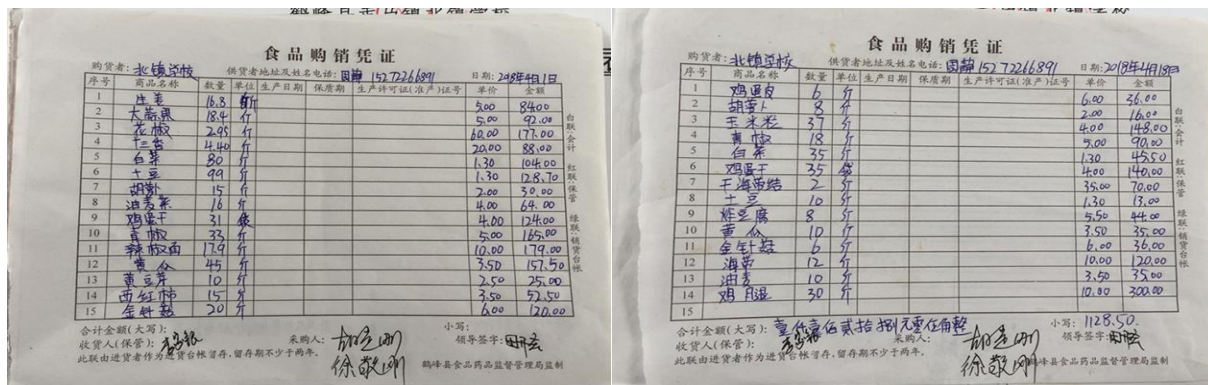 食品购销凭证
购货者：北镇学校 供货者地址及姓名电话：田静 15272266891 日期：2018年4月1日
序号 商品名称 数量 单位 生产日期 保质期 生产许可证(准产)证号 单价 金额
1 庄麦 16.8 斤 5.00 84.00
2 大蒜果 18.4 斤 5.00 92.00
3 花椒 2.95 斤 60.00 177.00
4 十三香 4.40 斤 20.00 88.00
5 白菜 80 斤 1.30 104.00
6 土豆 99 斤 1.30 128.70
7 胡萝卜 15 斤 2.00 30.00
8 油麦菜 16 斤 4.00 64.00
9 鸡蛋干 31 袋 4.00 124.00
10 青椒 33 斤 5.00 165.00
11 辣椒面 17.9 斤 10.00 179.00
12 黄瓜 45 斤 3.50 157.50
13 黄豆芽 10 斤 2.50 25.00
14 西红柿 15 斤 3.50 52.50
15 金针菇 20 斤 6.00 120.00
白联：会计 红联：保管 绿联：销货台帐
合计金额(大写)： 小写：
收货人(保管)： 采购人： 徐敬刚 领导签字：
此联由进货者作为进货台帐留存，留存期不少于两年。 鹤峰县食品药品监督管理局监制
食品购销凭证
购货者：北镇学校 供货者地址及姓名电话：田静 15272266891 日期：2018年4月18日
序号 商品名称 数量 单位 生产日期 保质期 生产许可证(准产)证号 单价 金额
1 鸡蛋皮 6 斤 6.00 36.00
2 胡萝卜 8 斤 2.00 16.00
3 玉米粒 37 斤 4.00 148.00
4 青椒 18 斤 5.00 90.00
5 白菜 35 斤 1.30 45.50
6 鸡蛋干 35 袋 4.00 140.00
7 干海带结 2 斤 35.00 70.00
8 土豆 10 斤 1.30 13.00
9 炸豆腐 8 斤 5.50 44.00
10 黄瓜 10 斤 3.50 35.00
11 金针菇 6 斤 6.00 36.00
12 海带 12 斤 10.00 120.00
13 油麦 10 斤 3.50 35.00
14 鸡月退 30 斤 10.00 300.00
15
白联：会计 红联：保管 绿联：销货台帐
合计金额(大写)：壹仟壹佰贰拾捌元零伍角整 小写：1128.50.
收货人(保管)： 采购人： 徐敬刚 领导签字：
此联由进货者作为进货台帐留存，留存期不少于两年。 鹤峰县食品药品监督管理局监制